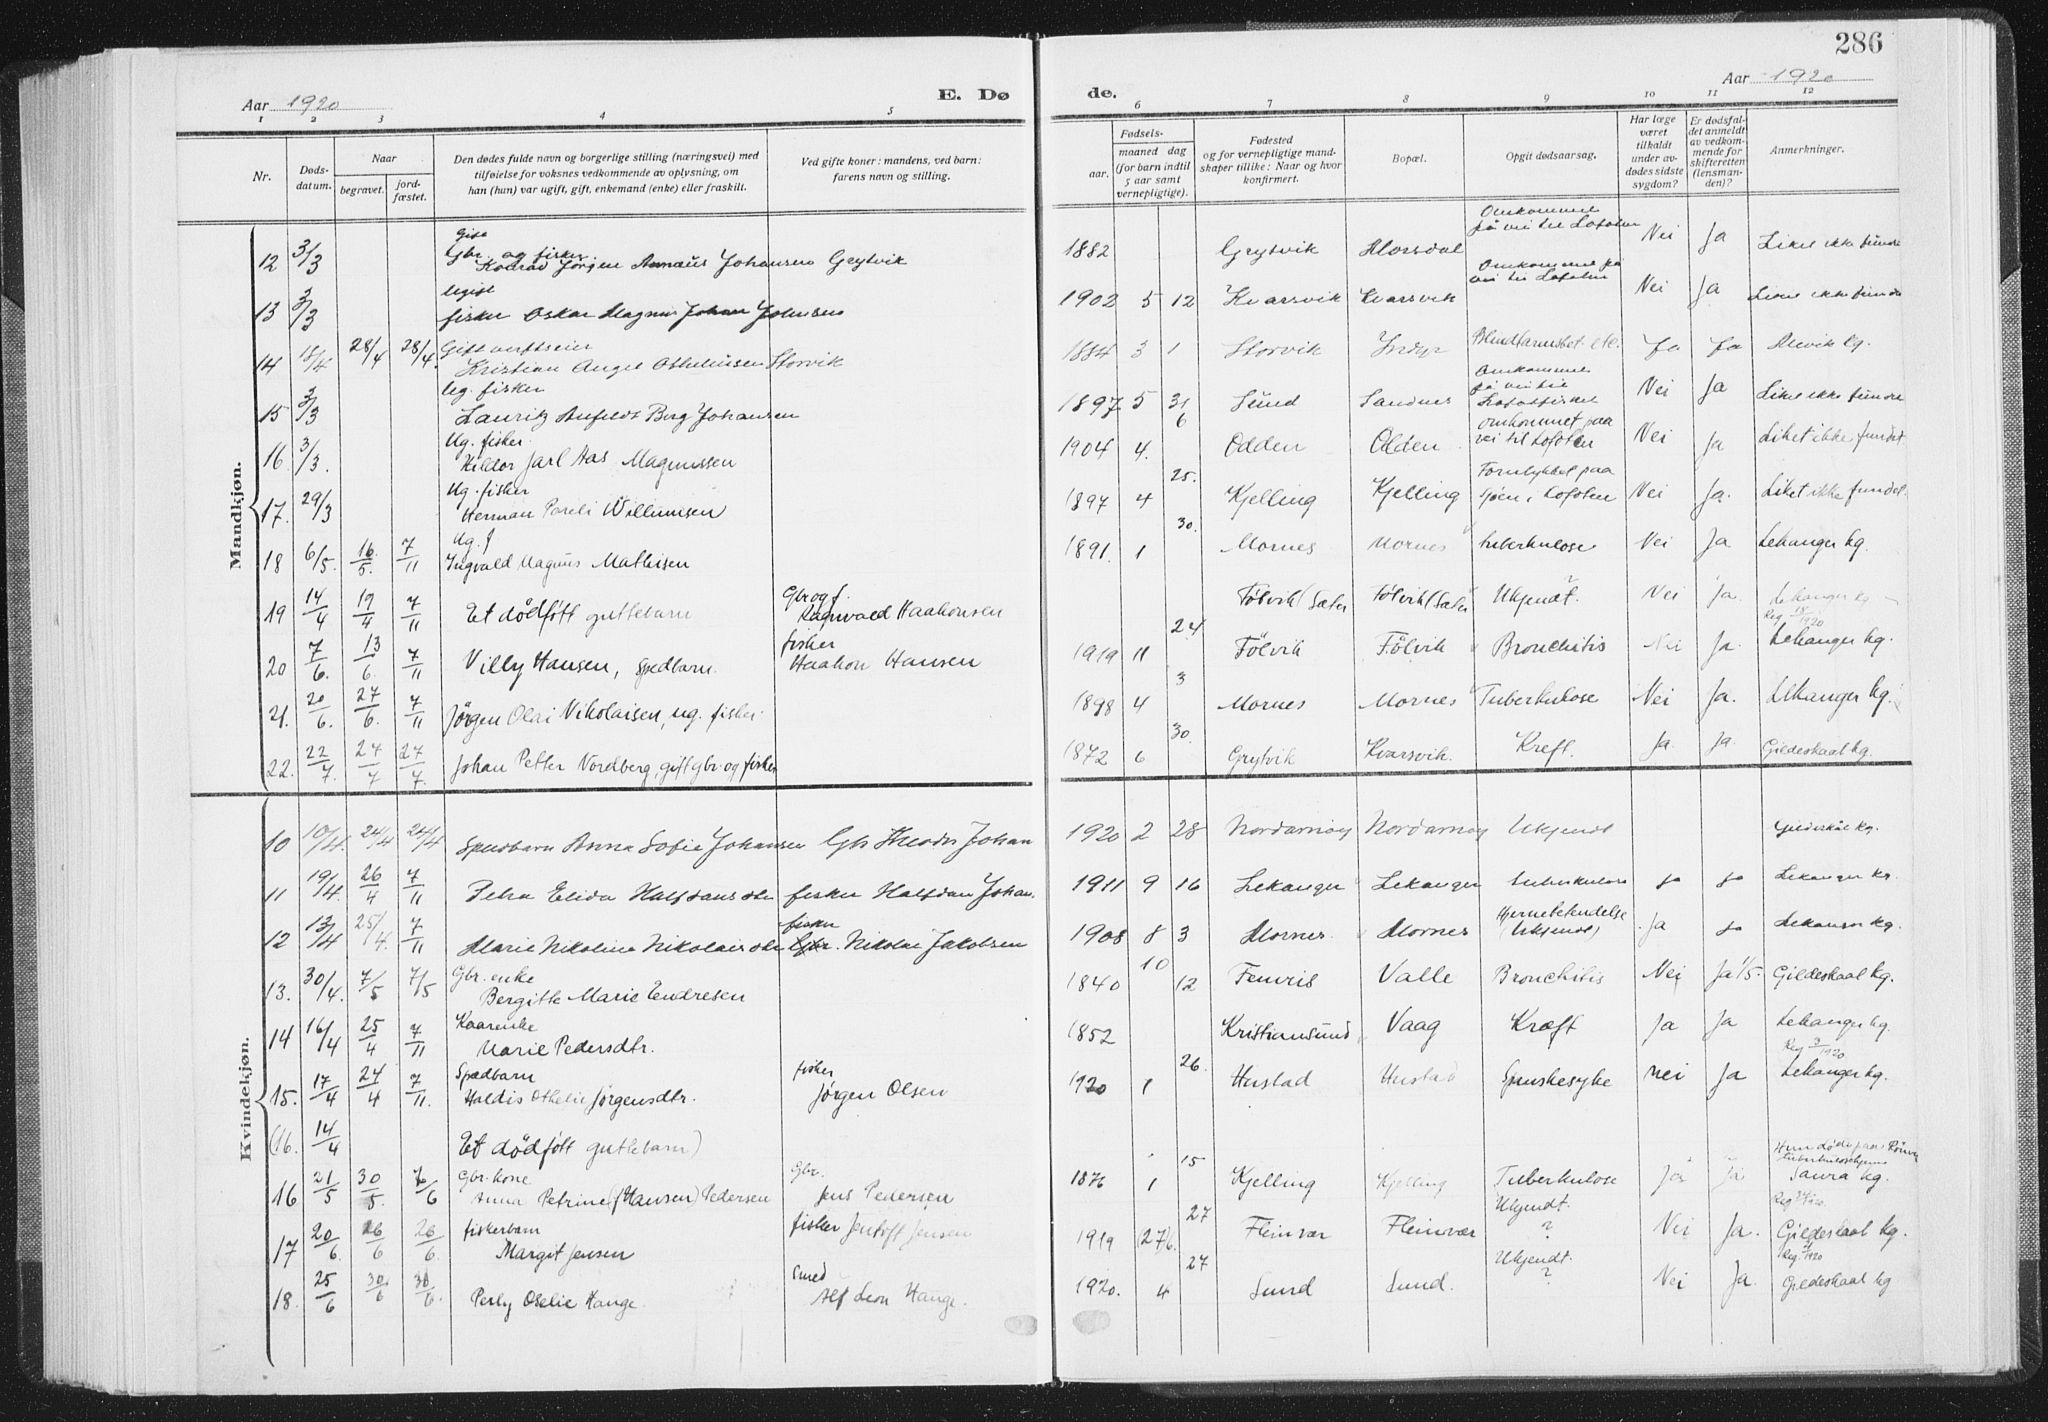 286
Aar 1920
E. Dø
de.
Aar 1920
1 2 3 4 5 6 7 8 9 10 11 12
Nr.
Døds-
datum.
Naar
begravet.
jord-
fæstet.
Den dødes fulde navn og borgerlige stilling (næringsvei) med
tilføielse for voksnes vedkommende av oplysning, om
han (hun) var ugift, gift, enkemand (enke) eller fraskilt.
Ved gifte koner: mandens, ved barn:
farens navn og stilling.
Fødsels-
aar.
maaned dag
(for barn indtil
5 aar samt
vernepligtige).
Fødested
og for vernepligtige mand-
skaper tillike: Naar og hvor
konfirmert.
Bopæl.
Opgit dødsaarsag.
Har læge
været
tilkaldt
under av-
dødes sidste
sygdom?
Er dødsfal-
det anmeldt
av vedkom-
mende for
skifteretten
(lensman-
den)?
Anmerkninger.
Mandkjøn.
12 3/3 Gift Gbr. og fisker Konrad Jørgen Johansen Grytvik 1882 Grytvik Morsdal Omkommet på vei til Lofoten Nei Ja Liket ikke fundet
13 3/3 Ugift fisker Oskar Magnus Johan Johnsen 1902 5 12 Kvarsvik Kvarsvik Omkommet på vei til Lofoten Nei Ja Liket ikke fundet
14 18/4 28/4 28/4. Gift Kristian Angel Otheliusen Storvik 1884 3 1 Storvik Indyr Ja Ja
15 3/3 Ug. fisker Lauritz Berg Johansen 1897 5 31 Sund Sandnes Omkommet på vei til Lofotfisket Nei Ja Liket ikke fundet
16. 3/3. Ug. fisker. Hildor Jarl Aas Magnussen 1904 4. 6 Odden Odden omkommet paa vei til Lofoten Nei Ja Liket ikke fundet
17. 29/3 Ug. fisker Herman Pareli Willumsen 1897 4 25. Kjelling Kjelling Forulykket paa sjøen i Lofoten Nei Ja. Liket ikke fundet.
18 6/5. 16/5. 7/11 Ug. f Ingvald Magnus Mathisen 1891. 1 30. Mornes Mornes tuberkulose Nei Ja Lekanger kg.
19 14/4 19/4 7/11 Et dödfött guttebarn Gbr og f. Ragnvald Haakonsen Fölvik (Sæter Fölvik (Sæter Ukjendt. ? Nei Ja. Lekanger kg Reg. 18/1920
20 7/6. 13/6. 7/11 Villy Hansen, spedbarn. fisker Haakon Hansen 1919 11 24 Fölvik Fölvik Bronchitis Nei Ja. Lekanger kg.
21. 20/6. 27/6. 7/11 Jörgen Olai Nikolaisen, ug. fisker. 1898 4 3 Mornes Mornes Tuberkulose Nei Ja. Lekanger kg.
22. 22/7. 27/7 27/7. Johan Petter Nordberg, gift gbr. og fisker 1872 6 30. Grytvik Kvarsvik. Kreft. Ja. Ja. Gildeskaal kg.
Kvindekjøn.
10 10/4. 24/4 24/4 Spædbarn Anna Sofie Johansen Gbr Theodor Johan 1920 2 28 Nordarnøy Nordarnøy Ukjendt Gildeskål kg.
11 19/4. 26/4 7/11 Petra Elida Halfdansdtr fisker Halfdan Johan. 1911 9 16 Lekanger Lekanger tuberkulose Ja Ja Lekanger kg.
12 13/4 25/4. 7/11 Marie Nikoline Nikolaisdtr fisker Gbr. Nikolai Jakobsen 1908 8 3 Mornes. Mornes Hjernebetendelse (Ukjendt) Ja Ja Lekanger kg.
13. 30/4. 7/5 7/5 Gbr. enke Bergitte Marie Endresen 1840 10 12 Femris Valle Bronchitis Nei Ja 1/5. Gildeskaal kg.
14 16/4 25/4 7/11 Kaarenke Marie Pedersdtr. 1852 Kristiansund Vaag Kræft Ja Ja Lekanger kg. Reg 3/1920
15. 17/4 24/4 7/11. Spædbarn Haldis Othelie Jørgensdtr. fisker Jørgen Olsen 1920 1 26. Hustad Hustad Spuskesyke nei Ja Lekanger kg.
(16. 14/4 Et dödfött guttebarn)
16 21/5 30/5. 7/6 Gbr. kone Anna Petrine (Hansen) Pedersen Gbr. Jens Pedersen 1876 1 15 Kjelling Kjelling Tuberkulose Ja Ja Saura kg.
17 20/6. 26/6 26/6. fiskerbarn Margit Jensen fisker Jentoft Jensen 1919 (27/6. 27 Fleinvær Fleinvær Ukjendt. ? Nei Ja. Gildeskaal kg.
18. 25/6 30/6 30/6. Perly Oselie Hauge. Smed Alf Leon Hauge. 1920. 4 27 Sund Sund. Ukjendt. ? Nei Ja. Gildeskaal kg